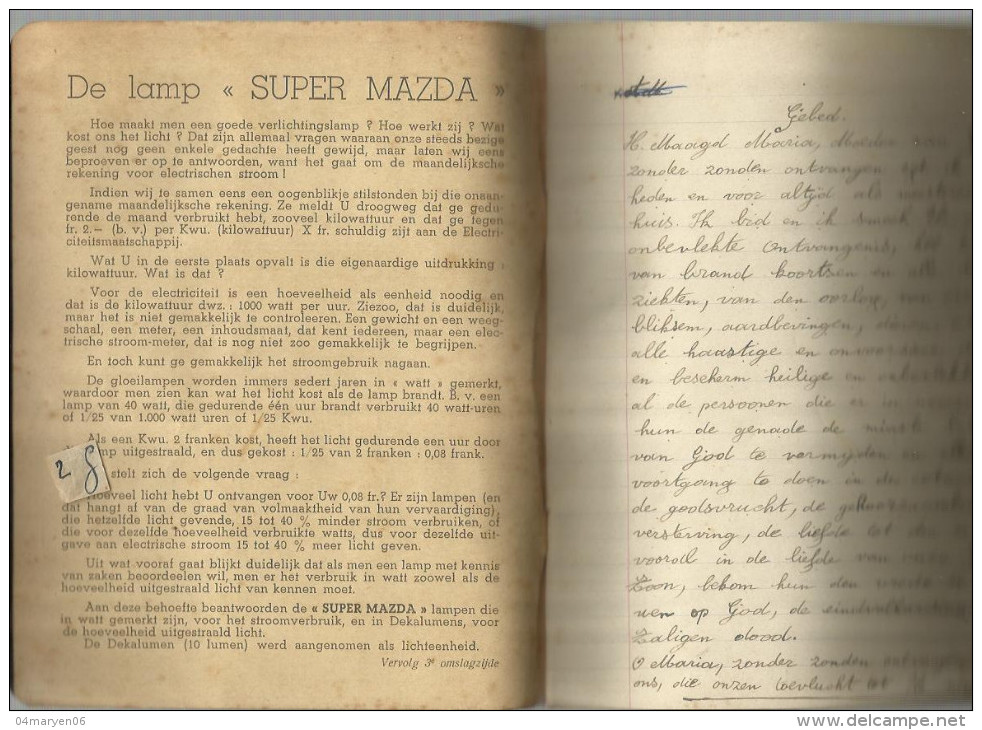 De lamp « SUPER MAZDA »
Hoe maakt men een goede verlichtingslamp ? Hoe werkt zij ? Wat
kost ons het licht ? Dat zijn allemaal vragen waaraan onze steeds bezige
geest nog geen enkele gedachte heeft gewijd, maar laten wij eens
beproeven er op te antwoorden, want het gaat om de maandelijksche
rekening voor electrischen stroom !
Indien wij te samen eens een oogenblikje stilstonden bij die onaan-
gename maandelijksche rekening. Ze meldt U droogweg dat ge gedu-
rende de maand verbruikt hebt, zooveel kilowattuur en dat ge tegen
fr. 2.— (b. v.) per Kwu. (kilowattuur) X fr. schuldig zijt aan de Electri-
citeitsmaatschappij.
Wat U in de eerste plaats opvalt is die eigenaardige uitdrukking :
kilowattuur. Wat is dat ?
Voor de electriciteit is een hoeveelheid als eenheid noodig en
dat is de kilowattuur dwz. : 1000 watt per uur. Ziezoo, dat is duidelijk,
maar het is niet gemakkelijk te controleeren. Een gewicht en een weeg-
schaal, een meter, een inhoudsmaat, dat kent iedereen, maar een elec-
trische stroom-meter, dat is nog niet zoo gemakkelijk te begrijpen.
En toch kunt ge gemakkelijk het stroomgebruik nagaan.
De gloeilampen worden immers sedert jaren in « watt » gemerkt,
waardoor men zien kan wat het licht kost als de lamp brandt. B. v. een
lamp van 40 watt, die gedurende één uur brandt verbruikt 40 watt-uren
of 1/25 van 1.000 watt uren of 1/25 Kwu.
Als een Kwu. 2 franken kost, heeft het licht gedurende een uur door
uitgestraald, en dus gekost : 1/25 van 2 franken : 0,08 frank.
28
stelt zich de volgende vraag :
Hoeveel licht hebt U ontvangen voor Uw 0,08 fr.? Er zijn lampen (en
dat hangt af van de graad van volmaaktheid van hun vervaardiging),
die hetzelfde licht gevende, 15 tot 40 % minder stroom verbruiken, of
die voor dezelfde hoeveelheid verbruikte watts, dus voor dezelfde uit-
gave aan electrische stroom 15 tot 40 % meer licht geven.
Uit wat vooraf gaat blijkt duidelijk dat als men een lamp met kennis
van zaken beoordeelen wil, men er het verbruik in watt zoowel als de
hoeveelheid uitgestraald licht van kennen moet.
Aan deze behoefte beantwoorden de « SUPER MAZDA » lampen die
in watt gemerkt zijn, voor het stroomverbruik, en in Dekalumens, voor
de hoeveelheid uitgestraald licht.
De Dekalumen (10 lumen) werd aangenomen als lichteenheid.
Vervolg 3e omslagzijde
Gebed.
H. Maagd Maria, Moeder van
zonder zonden ontvangen
heden en voor altijd als
huis. Ik bid en ik smeek
onbevlekte ontvangenis,
van brand koortsen en alle
ziekten, van den oorlog, van
bliksem, aardbevingen,
alle haastige en
en bescherm heilige en
al de persoonen die er in
hun de genade de minste
van God te vermijden
voortgang te doen in de
de godsvrucht, de
versterving, de liefde tot
vooral in de liefde van
Zoon, bekom hun den vrede
wen op God, de
Zaligen dood.
O Maria, zonder zonden
ons, die onzen toevlucht tot U
04maryen06
http://www.delcampe.net